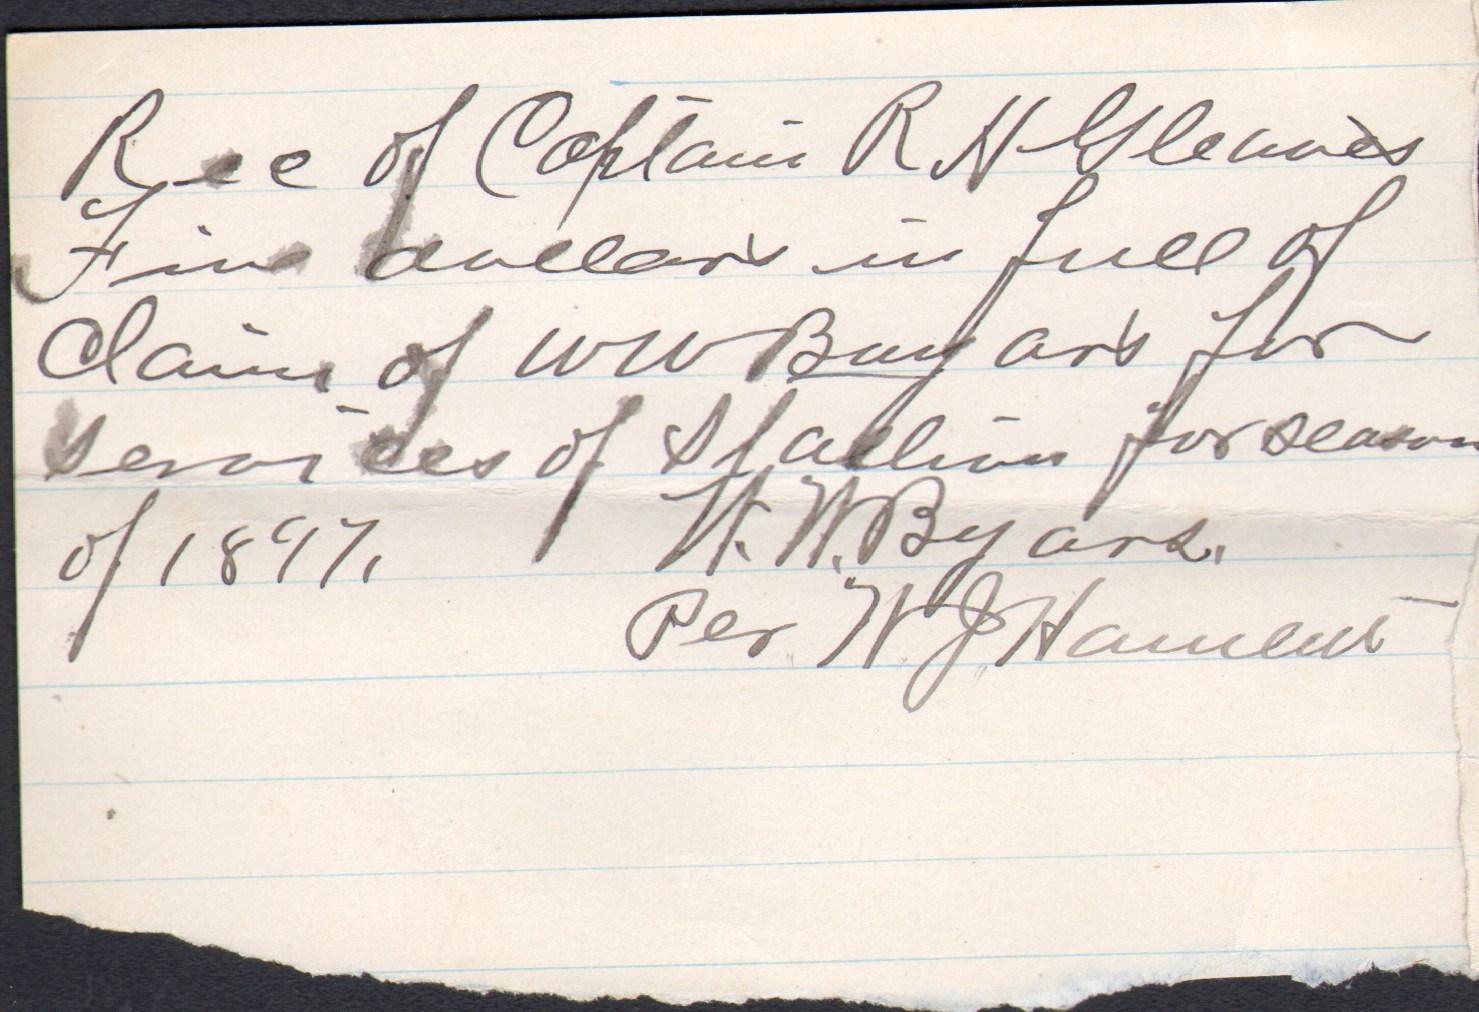 Rec of Captain R H Gleaves
Five dollars in full of
Claim of W W Byars for
services of Stallion for season
of 1897.   W. W. Byars.
Per W. J.